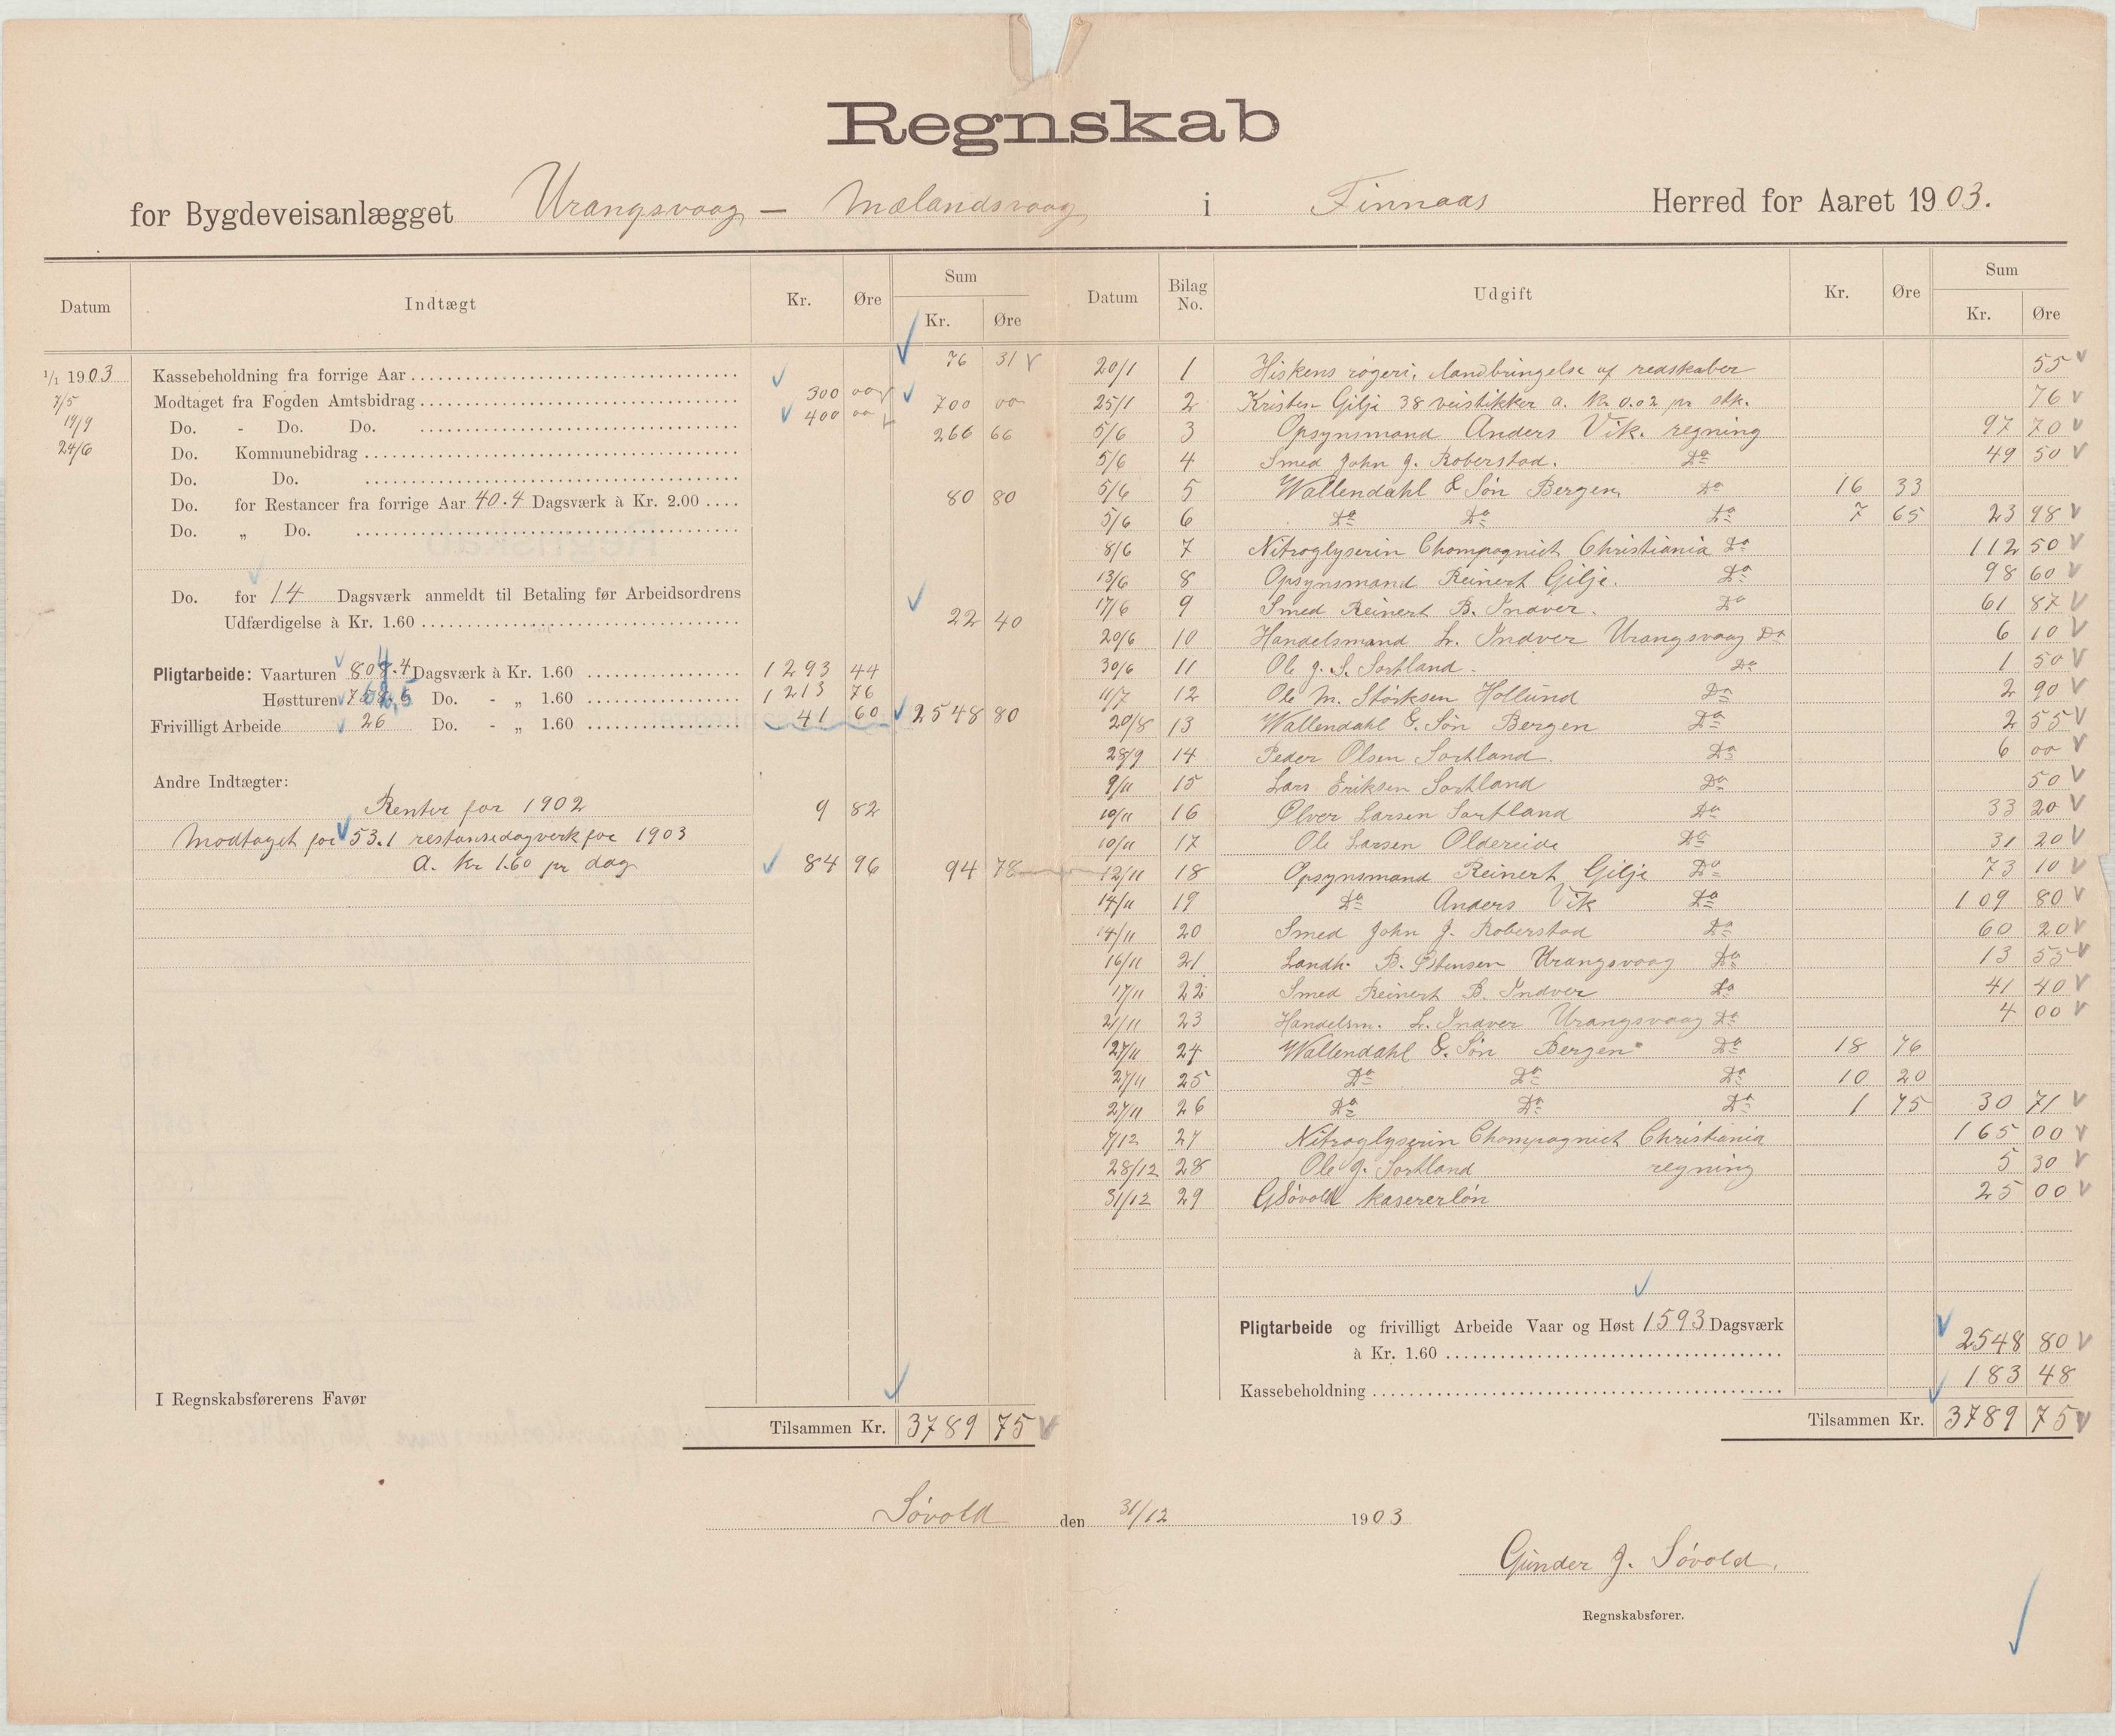 Regnskab
for Bygdeveisanlægget Urangsvaag – Mælandsvaag i Finnaas Herred for Aaret 1903.
Datum Indtægt Kr. Øre Sum Kr. Øre
1/1 1903 Kassebeholdning fra forrige Aar 76 31
7/5 Modtaget fra Fogden Amtsbidrag 300 00
19/9 Do. - Do. Do. 400 00 700 00
24/6 Do. Kommunebidrag 266 66
Do. Do.
Do. for Restancer fra forrige Aar 40.4 Dagsværk à Kr. 2.00 80 80
Do. „ Do.
Do. for 14 Dagsværk anmeldt til Betaling før Arbeidsordrens
Udfærdigelse à Kr. 1.60 22 40
Pligtarbeide: Vaarturen 808.4 Dagsværk à Kr. 1.60 1293 44
Høstturen Do. - „ 1.60 1213 76
Frivilligt Arbeide 26 Do. - „ 1.60 41 60 2548 80
Andre Indtægter:
Renter for 1902 9 82
Modtaget for 53.1 restansedagverk for 1903
a. Kr 1.60 pr dag 84 96 94 78
I Regnskabsførerens Favør
Tilsammen Kr. 3789 75
Datum Bilag No. Udgift Kr. Øre Sum Kr. Øre
20/1 1 Hiskens røgeri, ilandbringelse af redskaber 55
25/1 2 Kristen Gilje 38 veistikker a. Kr. 0.02 pr stk. 76
5/6 3 Opsynsmand Anders Vik. regning 97 70
5/6 4 Smed John J. Roberstad. Do 49 50
5/6 5 Wallendahl & Søn Bergen. Do 16 33
5/6 6 Do Do Do 7 65 23 98
8/6 7 Nitroglyserin Chompagniet Christiania Do 112 50
13/6 8 Opsynsmand Reinert Gilje. Do 98 60
17/6 9 Smed Reinert B. Indver. Do 61 87
20/6 10 Handelsmand L. Indver Urangsvaag Do 6 10
30/6 11 Ole J. S. Sortland. Do 1 50
11/7 12 Ole M. Størksen Hollund Do 2 90
20/8 13 Wallendahl & Søn Bergen Do 2 55
28/9 14 Peder Olsen Sortland. Do 6 00
9/11 15 Lars Eriksen Sortland Do 50
10/11 16 Ølver Larsen Sortland Do 33 20
10/11 17 Ole Larsen Oldereide Do 31 20
12/11 18 Opsynsmand Reinert Gilje Do 73 10
14/11 19 Do Anders Vik Do 109 80
14/11 20 Smed John J. Roberstad Do 60 20
16/11 21 Landh. B. Urangsvaag Do 13 55
17/11 22 Smed Reinert B. Indver Do 41 40
21/11 23 Handelsm. L. Indver Urangsvaag Do 4 00
27/11 24 Wallendahl & Søn Bergen Do 18 76
27/11 25 Do Do Do 10 20
27/11 26 Do Do Do 1 75 30 71
7/12 27 Nitroglyserin Chompagniet Christiania 165 00
28/12 28 Ole J. Sortland regning 5 30
31/12 29 GSøvold kasererløn 25 00
Pligtarbeide og frivilligt Arbeide Vaar og Høst 1593 Dagsværk
à Kr. 1.60 2548 80
Kassebeholdning 183 48
Tilsammen Kr. 3789 75
Søvold den 31/12 1903
Gunder J. Søvold.
Regnskabsfører.